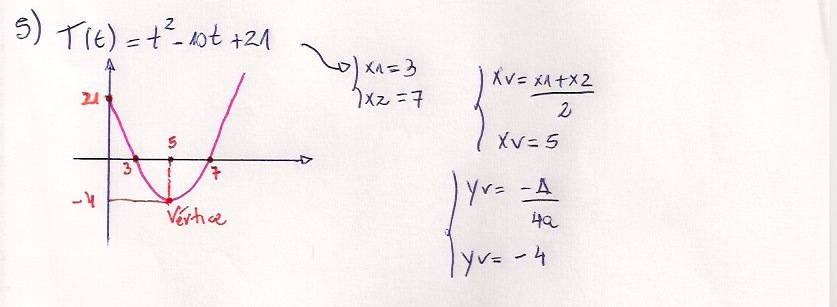 5) T(t) = t² - 10t + 21
x1 = 3
x2 = 7
xv = x1 + x2
2
xv = 5
yv = -Δ
4a
yv = -4
21
5
3
7
-4
Vértice